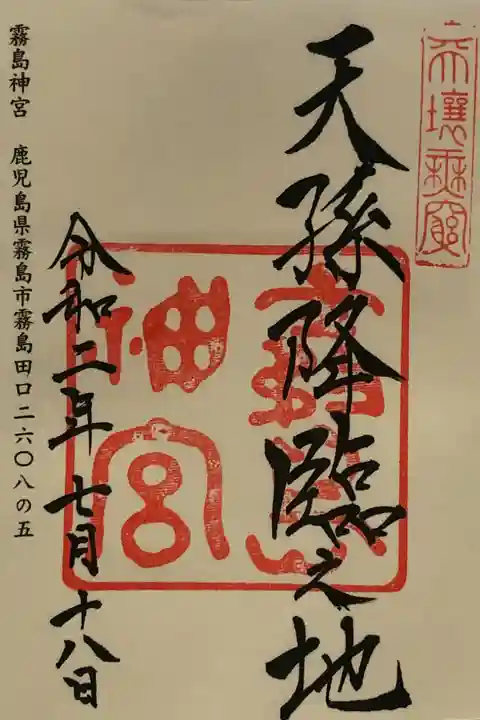 天壌無窮
天孫降臨之地
霧島神宮
令和二年七月十八日
霧島神宮 鹿児島県霧島市霧島田口二六〇八の五